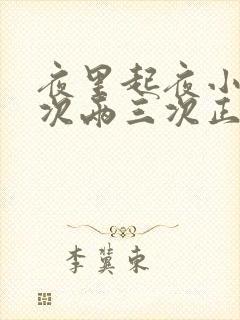 夜里起夜小
次两三次正
李冀东